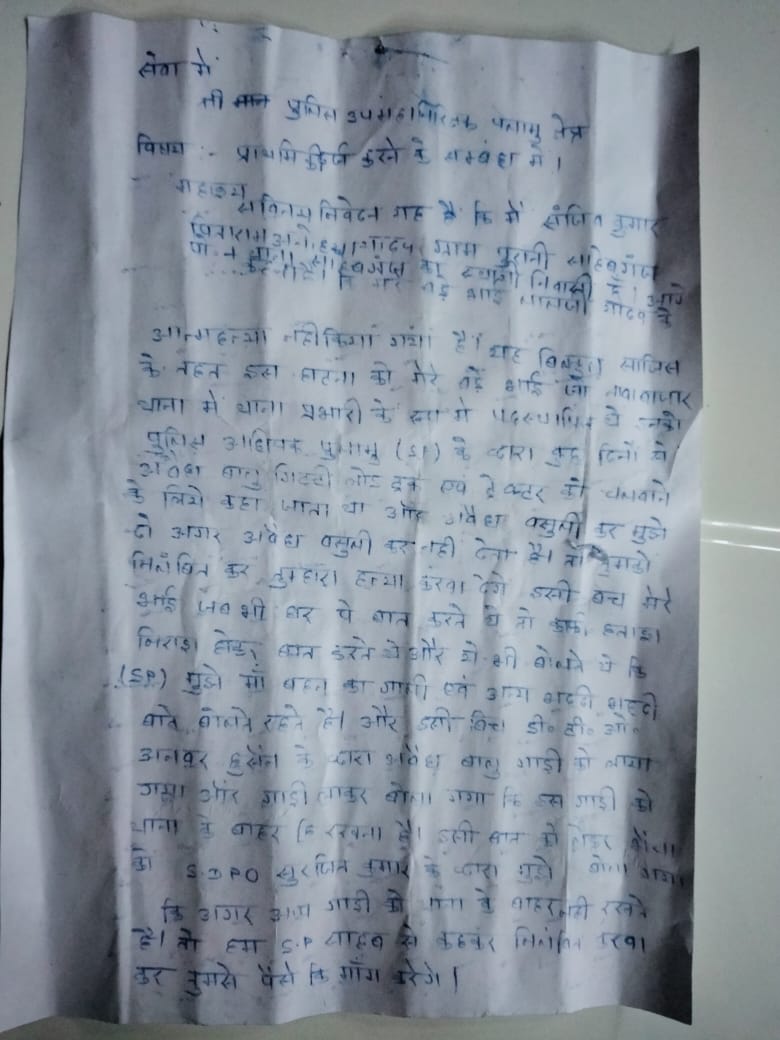 सेवा में
श्री मान पुलिस उपमहानिरिक्षक पलामु क्षेत्र
विषय :- प्राथमिकी दर्ज करने के सम्बंध में।
महाशय
सविनय निवेदन यह है कि मैं संजित कुमार
ग्राम पुरानी साहेबगंज
साहेबगंज का स्थायी निवासी हूँ। आगे
कहना है कि मेरे बड़े भाई लालजी यादव के
आत्महत्या नही किया गया है। यह बिल्कुल साजिस
के तहत इस घटना को मेरे बड़े भाई जो नावाबाजार
थाना में थाना प्रभारी के रूप में पदस्थापित थे उनको
पुलिस अधिक्षक पलामु (SP) के द्वारा कुछ दिनों से
अवैध बालु गिट्टी लोड ट्रक एवं ट्रेक्टर को चलवाने
के लिये कहा जाता था और अवैध वसुली कर मुझे
दो अगर अवैध वसुली कर नही देता है। तो तुमको
निलंबित कर तुम्हारा हत्या करवा देंगे इसी बिच मेरे
भाई जब भी घर पे बात करते थे तो काफी हताश
निराश होकर बात करते थे और ये भी बोलते थे कि
(SP) मुझे माँ बहन का गाली एवं अन्य भद्दी भद्दी
बाते बोलते रहते है। और इसी बिच डी॰ टी॰ ओ॰
अनवर हुसैन के द्वारा अवैध बालु गाडी को लाया
गया और गाडी लाकर बोला गया कि इस गाडी को
थाना के बाहर हि रखना है। इसी बात को लेकर
को S.DPO सुरजित कुमार के द्वारा मुझे बोला गया
कि अगर आप गाडी को थाना के बाहर नही रखते
है। तो हम S.P साहब से कहकर निलंबित करवा
कर तुमसे पैसे कि माँग करेगे।